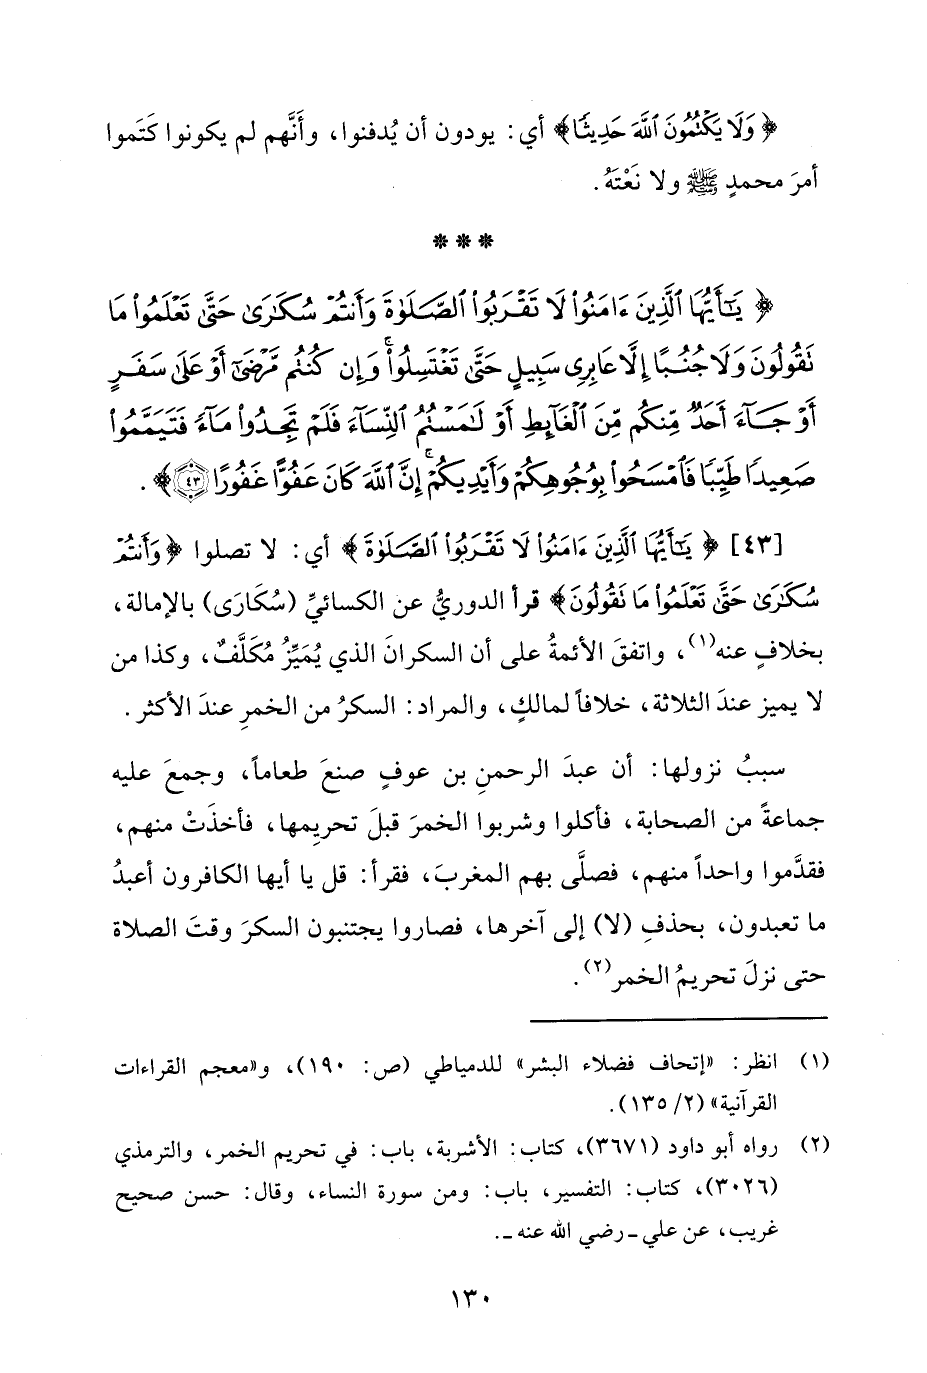 ﴿ وَلَا يَكْتُمُونَ ٱللَّهَ حَدِيثًا﴾ أي: يودون أن يُدفنوا، وأَنَّهم لم يكونوا كَتَموا
أمرَ محمدٍ ﷺ ولا نَعْتَهُ.
***
﴿ يَٰٓأَيُّهَا ٱلَّذِينَ ءَامَنُوا۟ لَا تَقْرَبُوا۟ ٱلصَّلَوٰةَ وَأَنتُمْ سُكَٰرَىٰ حَتَّىٰ تَعْلَمُوا۟ مَا
تَقُولُونَ وَلَا جُنُبًا إِلَّا عَابِرِى سَبِيلٍ حَتَّىٰ تَغْتَسِلُوا۟ ۚ وَإِن كُنتُم مَّرْضَىٰٓ أَوْ عَلَىٰ سَفَرٍ
أَوْ جَآءَ أَحَدٌ مِّنكُم مِّنَ ٱلْغَآئِطِ أَوْ لَٰمَسْتُمُ ٱلنِّسَآءَ فَلَمْ تَجِدُوا۟ مَآءً فَتَيَمَّمُوا۟
صَعِيدًا طَيِّبًا فَٱمْسَحُوا۟ بِوُجُوهِكُمْ وَأَيْدِيكُمْ ۗ إِنَّ ٱللَّهَ كَانَ عَفُوًّا غَفُورًا ٤٣﴾.
[٤٣] ﴿ يَٰٓأَيُّهَا ٱلَّذِينَ ءَامَنُوا۟ لَا تَقْرَبُوا۟ ٱلصَّلَوٰةَ ﴾ أي: لا تصلوا ﴿وَأَنتُمْ
سُكَٰرَىٰ حَتَّىٰ تَعْلَمُوا۟ مَا تَقُولُونَ﴾ قرأ الدوريُّ عن الكسائيِّ (سُكَارَى) بالإمالة،
بخلافٍ عنه(١)، واتفقَ الأئمةُ على أن السكرانَ الذي يُمَيِّزُ مُكَلَّفٌ، وكذا من
لا يميز عندَ الثلاثة، خلافاً لمالكٍ، والمراد: السكرُ من الخمرِ عندَ الأكثر.
سببُ نزولها: أن عبدَ الرحمنِ بن عوفٍ صنعَ طعاماً، وجمعَ عليه
جماعةً من الصحابة، فأكلوا وشربوا الخمرَ قبلَ تحريمِها، فأخذَتْ منهم،
فقدَّموا واحداً منهم، فصلَّى بهم المغربَ، فقرأ: قل يا أيها الكافرون أعبدُ
ما تعبدون، بحذفِ (لا) إلى آخرها، فصاروا يجتنبون السكرَ وقتَ الصلاة
حتى نزلَ تحريمُ الخمر(٢).
(١) انظر: «إتحاف فضلاء البشر» للدمياطي (ص: ١٩٠)، و«معجم القراءات
القرآنية» (٢/ ١٣٥).
(٢) رواه أبو داود (٣٦٧١)، كتاب: الأشربة، باب: في تحريم الخمر، والترمذي
(٣٠٢٦)، كتاب: التفسير، باب: ومن سورة النساء، وقال: حسن صحيح
غريب، عن علي ـ رضي الله عنه ـ.
١٣٠